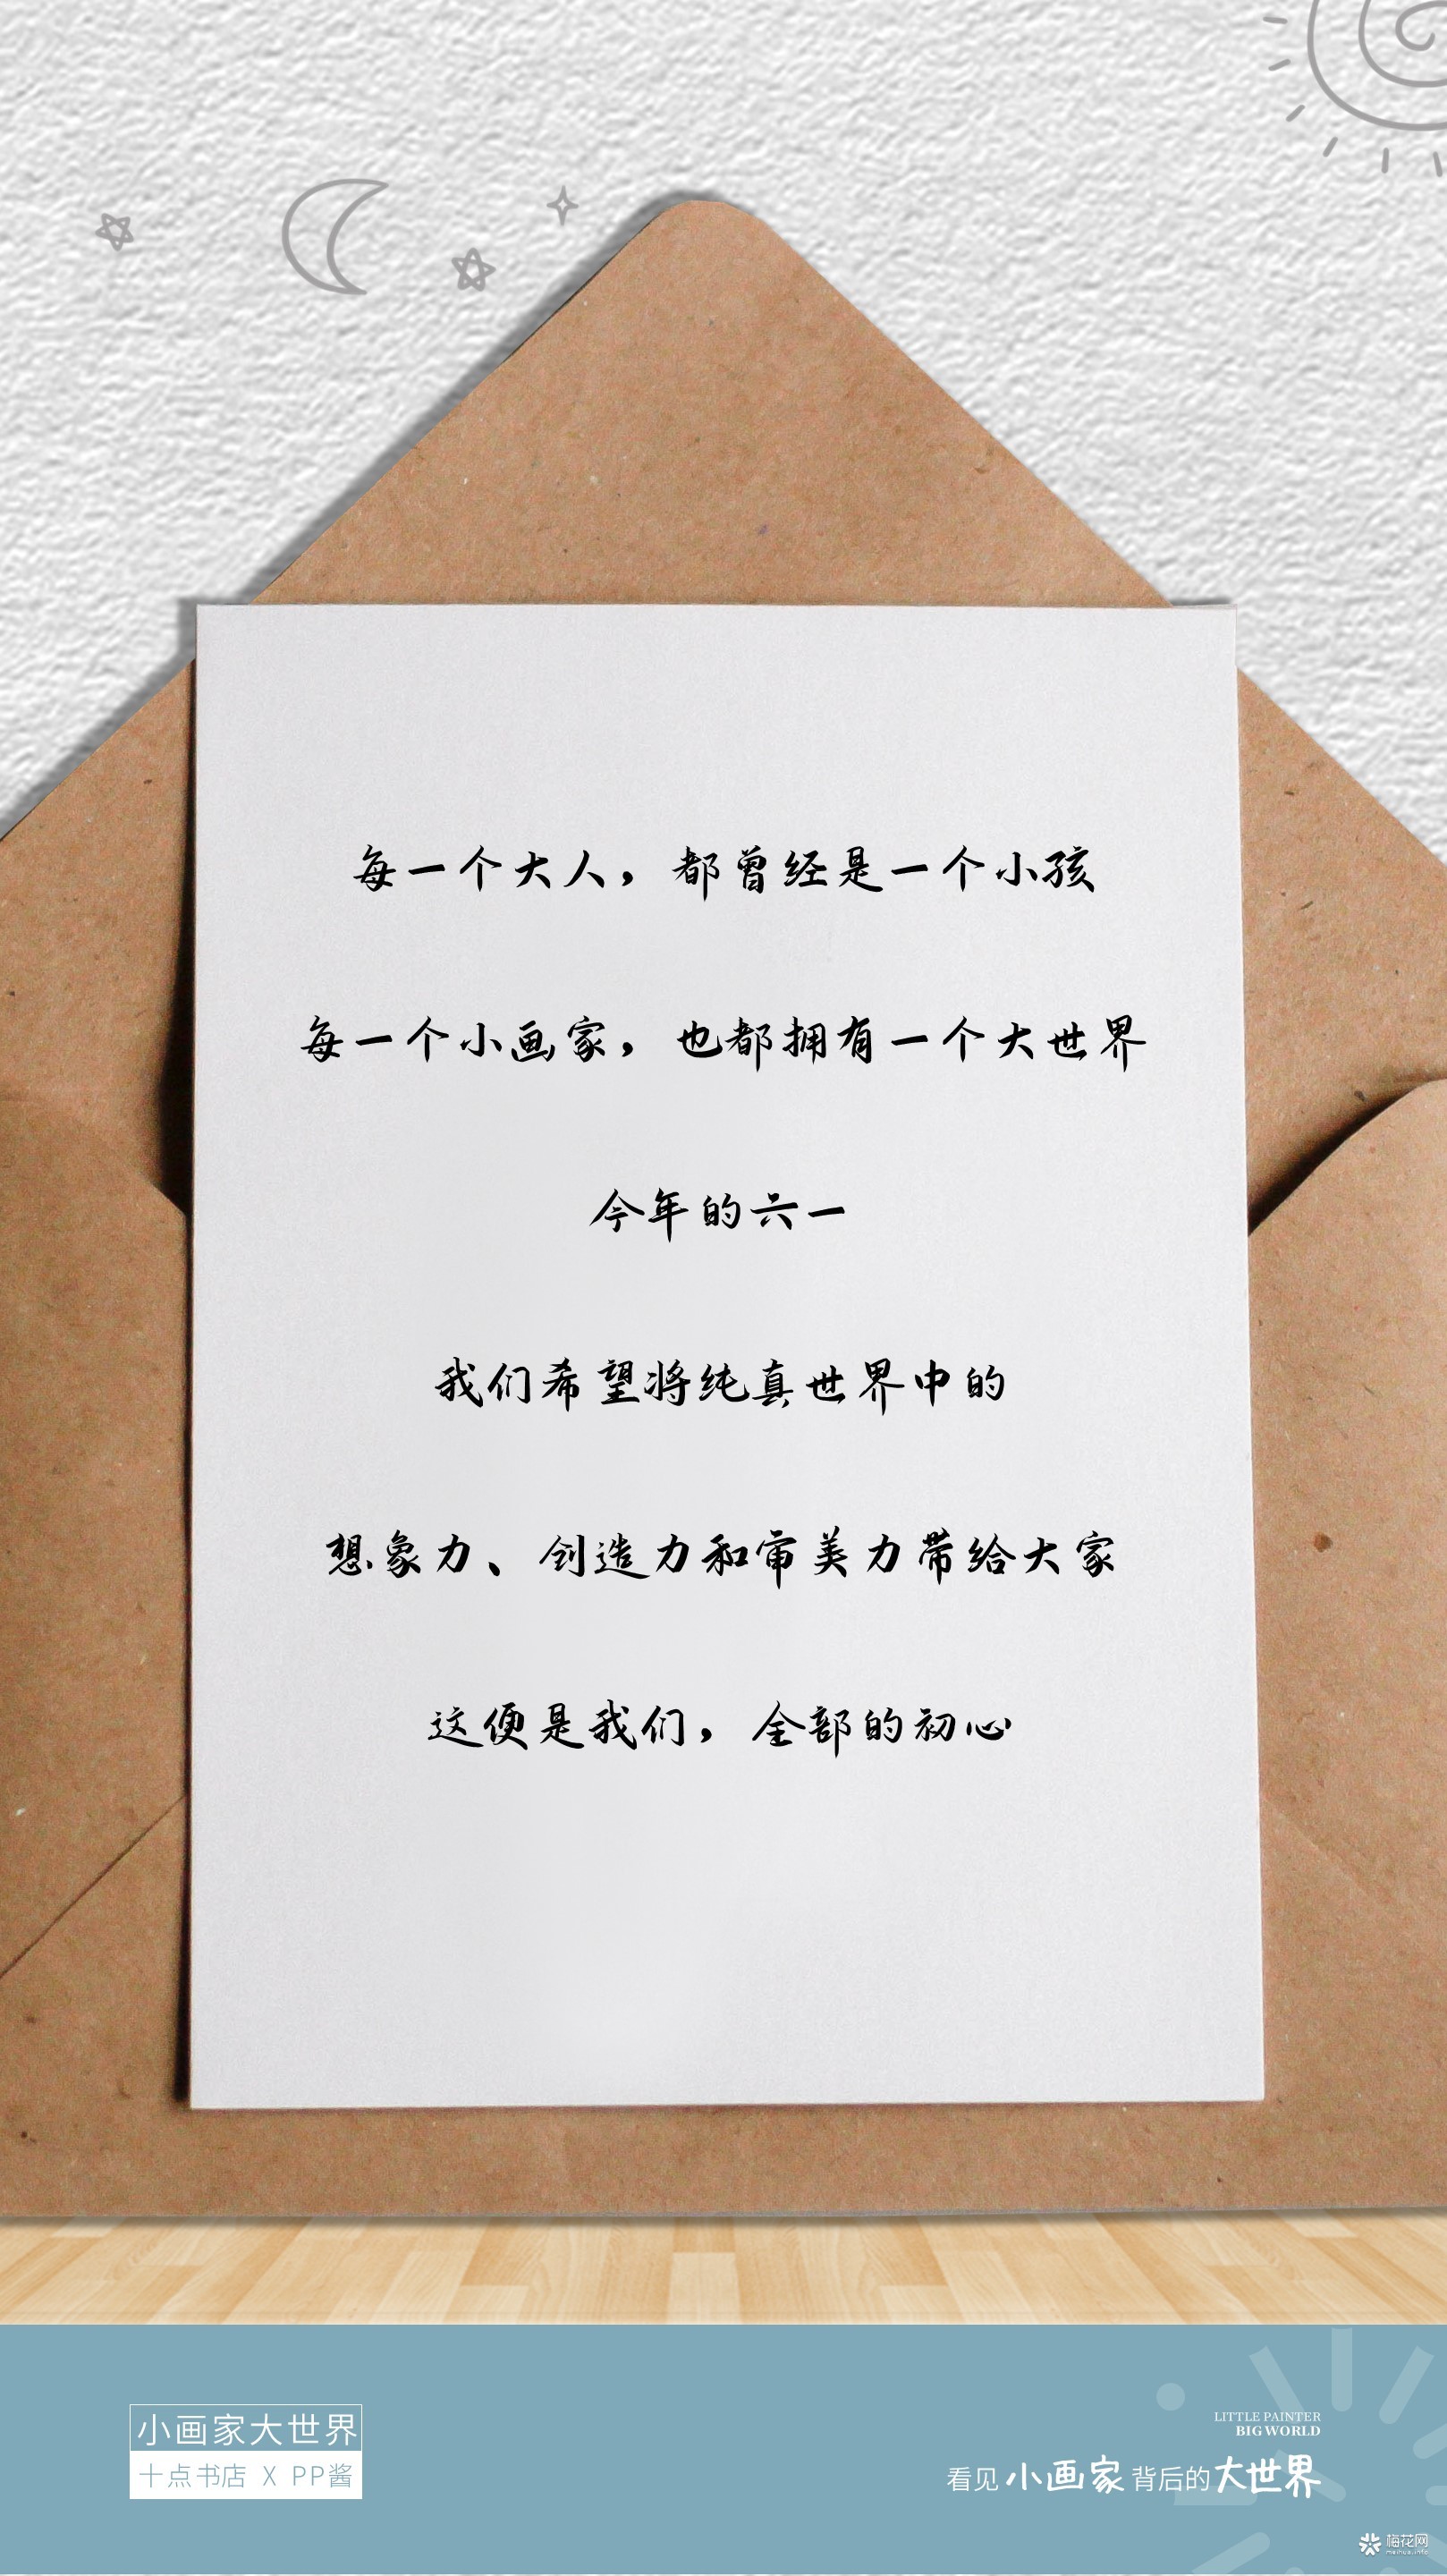 每一个大人，都曾经是一个小孩
每一个小画家，也都拥有一个大世界
今年的六一
我们希望将纯真世界中的
想象力、创造力和审美力带给大家
这便是我们，全部的初心
小画家大世界
十点书店 X PP酱
LITTLE PAINTER
BIG WORLD
看见小画家背后的大世界
梅花网
meihua.info